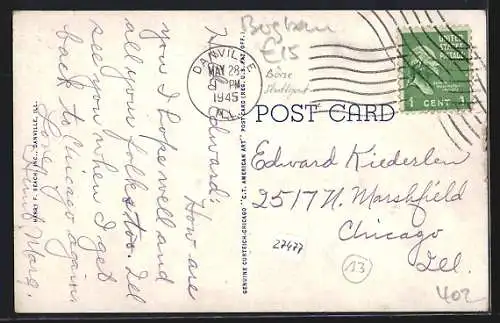 Dear Edward:
How are
you I hope well and
all your folks too. Ill
see you when I get
back to Chicago again
Love,
Aunt Marg.
HARRY F. BEACH, INC., DANVILLE, ILL.
GENUINE CURTEICH-CHICAGO "C.T. AMERICAN ART" POST CARD (REG. U.S. PAT. OFF.)
£15
Börse
Stuttgart
DANVILLE
MAY 28
PM
1945
ILL.
UNITED
STATES
POSTAGE
1 CENT 1
POST CARD
Edward Kiederlen
2517 N. Marshfield
Chicago
Ill.
27477
13
402